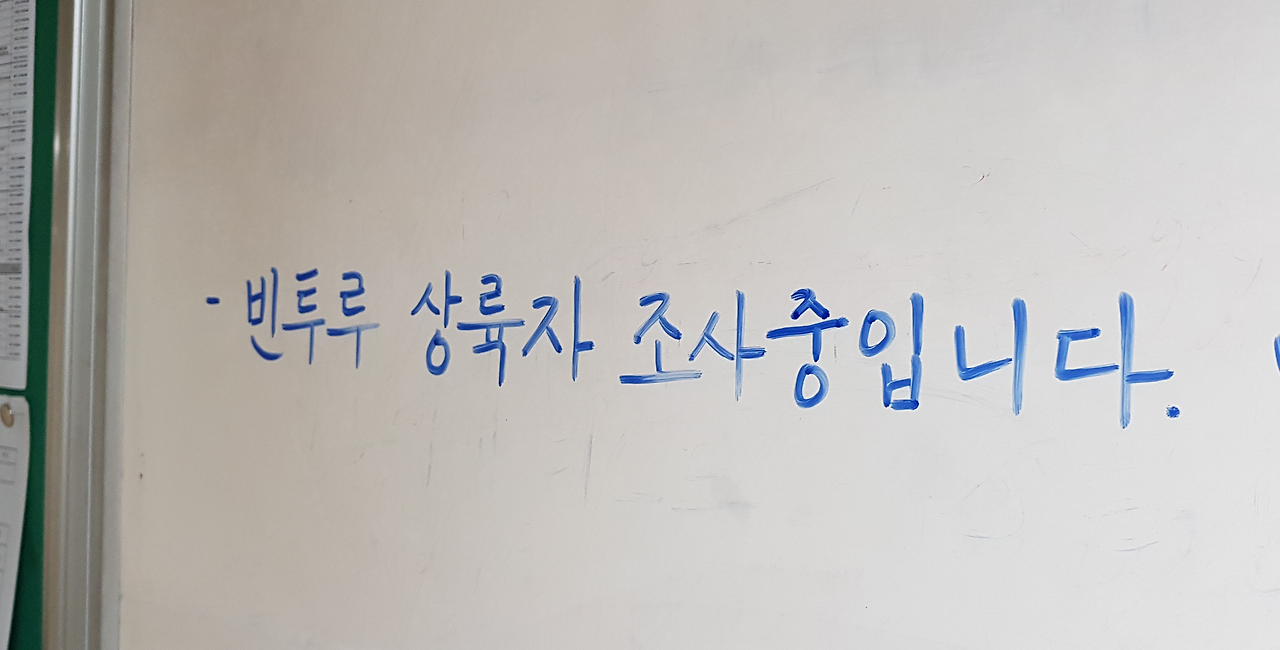 - 빈투루 상륙자 조사중입니다.